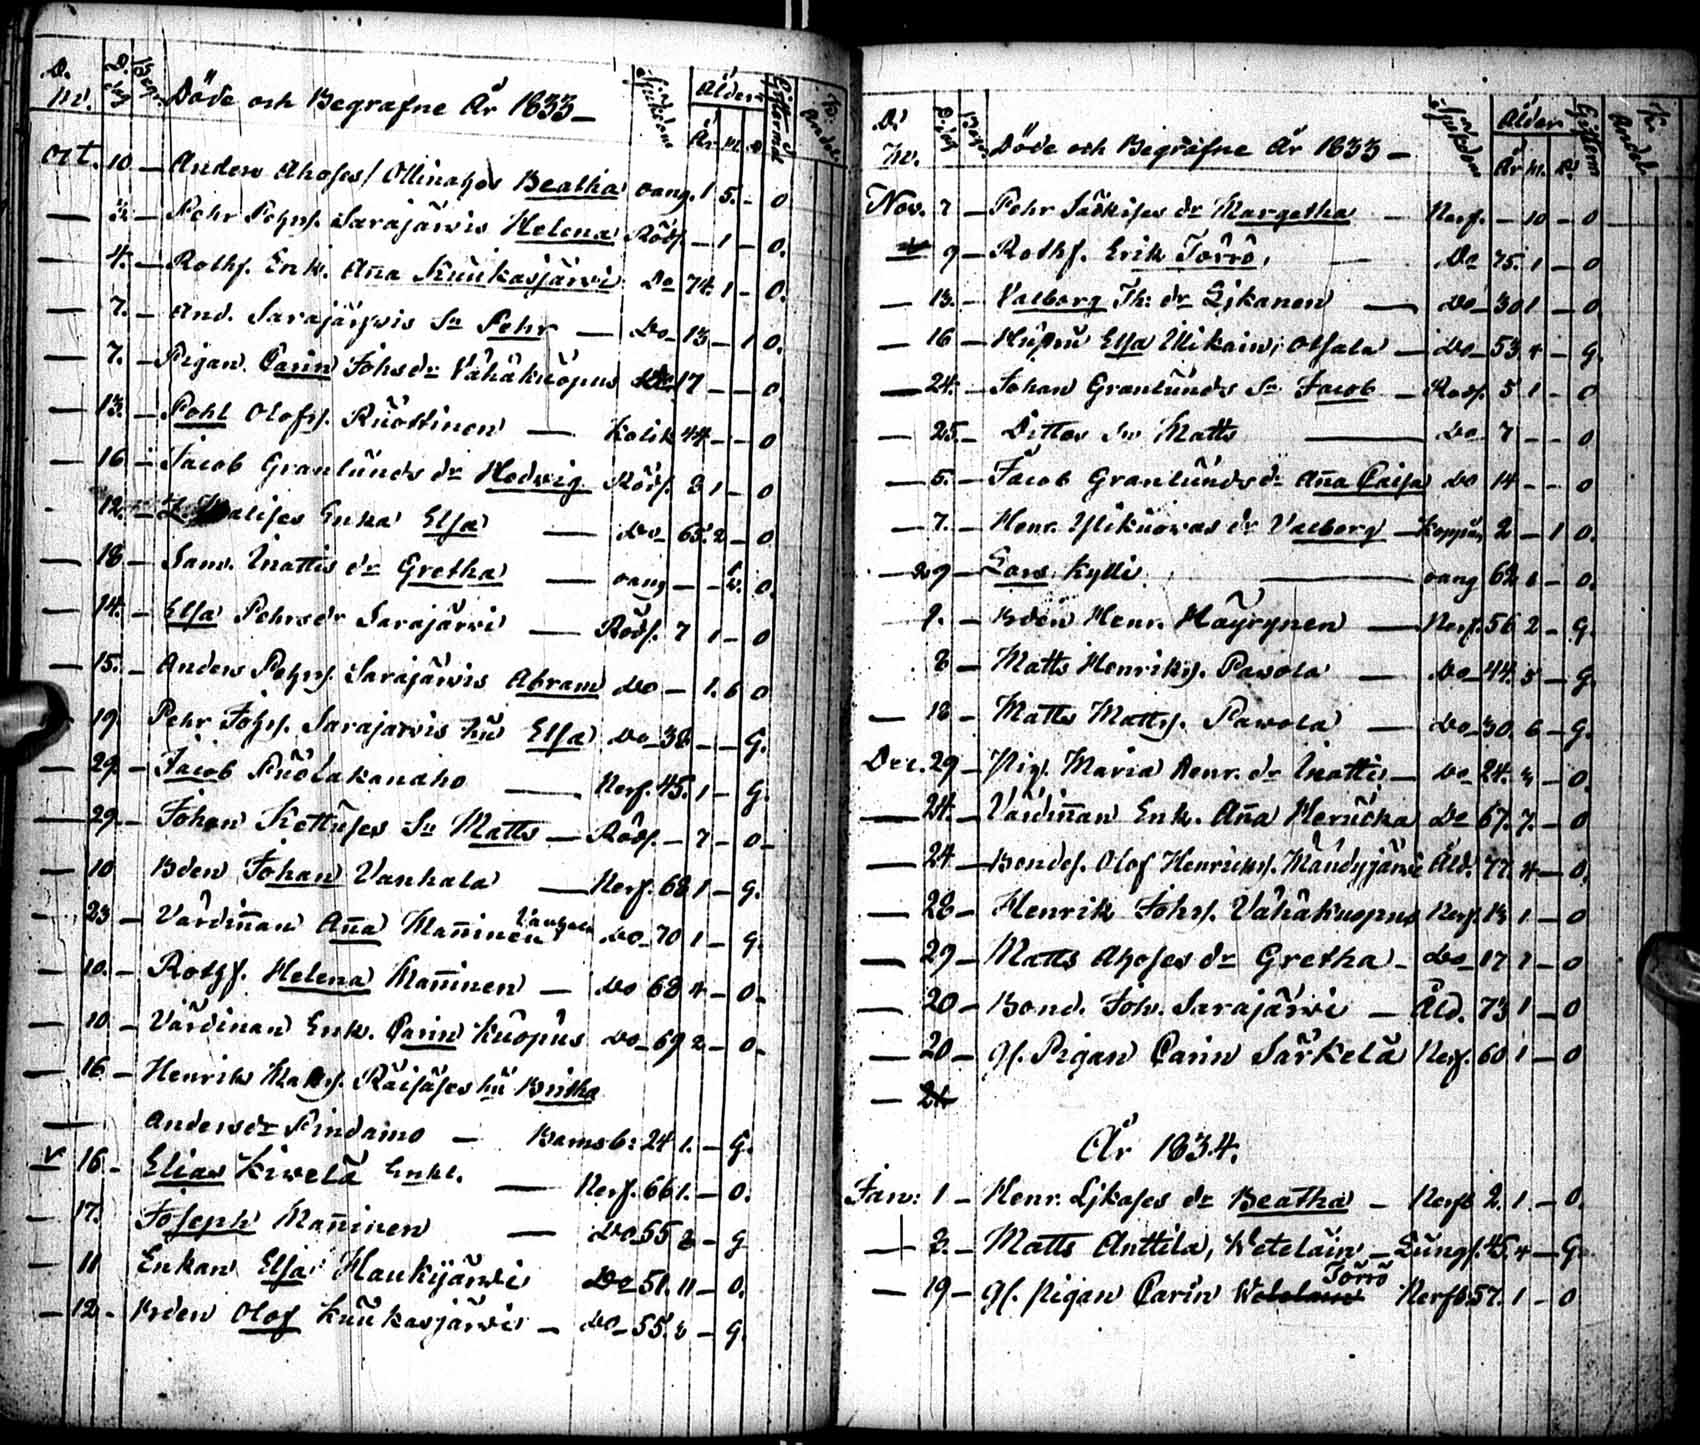 D. D. Begr. Döde och Begrafne År 1833 – Sjukdom Ålder Giftermål
M. dag År M. D.
Oct. 10 – Anders Ahoses / Ollinahos Beatha oang. 1 5. – 0
— – Pehr Pehrs. Sarajärvis Helena Röds. – 1 – 0.
— 4. – Rothf. Enk. Aña Kuukasjärvi Do 74. 1 – 0.
— 7. – And. Sarajärvis Sn Pehr — Do 13 – 1 0.
— 7. – Pigan Carin Johsdr Vähäkuopus Do 17 – – 0
— 13. – Pohl Olofss. Ruottinen — Kolik 44 – – 0
— 16 – Jacob Granlunds dr Hedwig Röds. 3 1 – 0
12. – Enka Elsa — Do 65. 2 – 0
— 18 – Sam. Inattis dr Gretha — oang – – 0.
— 14. – Elsa Pehrsdr Sarajärvi — Röds. 7 1 – 0
— 15. – Anders Pehrs. Sarajärvis Abram Do – 1. 6 0
— 19. Pehr Johss. Sarajärvis hu Elsa Do 38 – – G.
— 29. – Jacob Puolakanaho — Nerf. 45. 1 – G.
— 29. – Johan Kettuses Sn Matts — Röds. – 7 – 0 –
— 10 Bden Johan Vanhala — Nerf. 68 1 – G.
— 23 – Värdiñan Aña Mañinen Vanhala Do 70 1 – G.
— 10. – Rothf. Helena Mañinen — Do 68 4 – 0 –
— 10 – Värdiñan Enk. Carin Kuopus Do 69 2 – 0 –
— 16 – Henrik Matss. Räisäses hu Britha
— Andersdr Pindamo — Barnsb: 24 1. – G.
16 – Elias Kivelä Enkl. — Nerf. 66 1. – 0.
— 17. Joseph Mañinen — Do 55 2 – G
— 11 Enkan Elsa Haukijärvi Do 51. 11 – 0.
— 12 – Bden Olof Kuukasjärvi – Do 55. 2 – G.
D. D. Begr. Döde och Begrafne År 1833 – Sjukdom Ålder Gifterm
M. dag År M. D.
Nov. 7 – Pehr Särkises dr Margetha – Nerf. – 10 – 0
9 – Rothf. Erik Törrö, — Do 75. 1 – 0
— 13. – Valborg Th: dr Sjkanen — Do 30 1 – 0.
— 16 – Hustru Elsa Ulikain, Otsala — Do 53 4 – G.
— 24. – Johan Granlunds Sn Jacob – Röds. 5 1 – 0
— 25. – Dittos Sn Matts — Do 7 – – 0
— 5. – Jacob Granlunds dr Aña Caisa Do 14 – – 0
— 7. – Henr. Ylikuovas dr Valborg – Koppår 2 – 1 0.
— 29 – Lars Kylli. — oang 62 1 – 0.
9. – Bden Henr. Häyrynen — Nerf. 56 2 – G.
8 – Matts Henrikss. Pavola — Do 44. 5 – G.
— 18 – Matts Matss. Pavola — Do 30. 6 – G.
Dec. 29 – Pig. Maria Henr. dr Inatti – Do 24. 3 – 0.
— 24. – Värdiñan Enk. Aña Herucka Do 67. 7. – 0
— 24 – Bondes. Olof Henrikss. Mändyjärvi Åld. 77. 4 – 0.
— 28 – Henrik Johss. Vähäkuopus Nerf. 13 1 – 0
— 29 – Matts Ahoses dr Gretha – Do 17 1 – 0
— 20 – Bond. Joh. Sarajärvi – Åld. 73 1 – 0
— 20 – gl. Pigan Carin Särkelä Nerf. 60 1 – 0
— 24
År 1834.
Jan: 1 – Henr. Sjkases dr Beatha – Nerff 2. 1. – 0.
— 2. – Matts Anttila, Wetelain – Lungs. 45. 4 – G.
— 19 – gl. Pigan Carin Wetelain Törrö Nerff. 57. 1 – 0